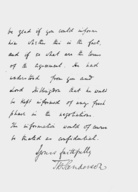 be glad if you could inform
me whether this is the fact,
and if so what are the terms
of the agreement. He had
understood from you and
Lord Dillington that he would
be kept informed of any fresh
phase in the negotiations.
The information would of course
be treated as confidential.
Yours faithfully,